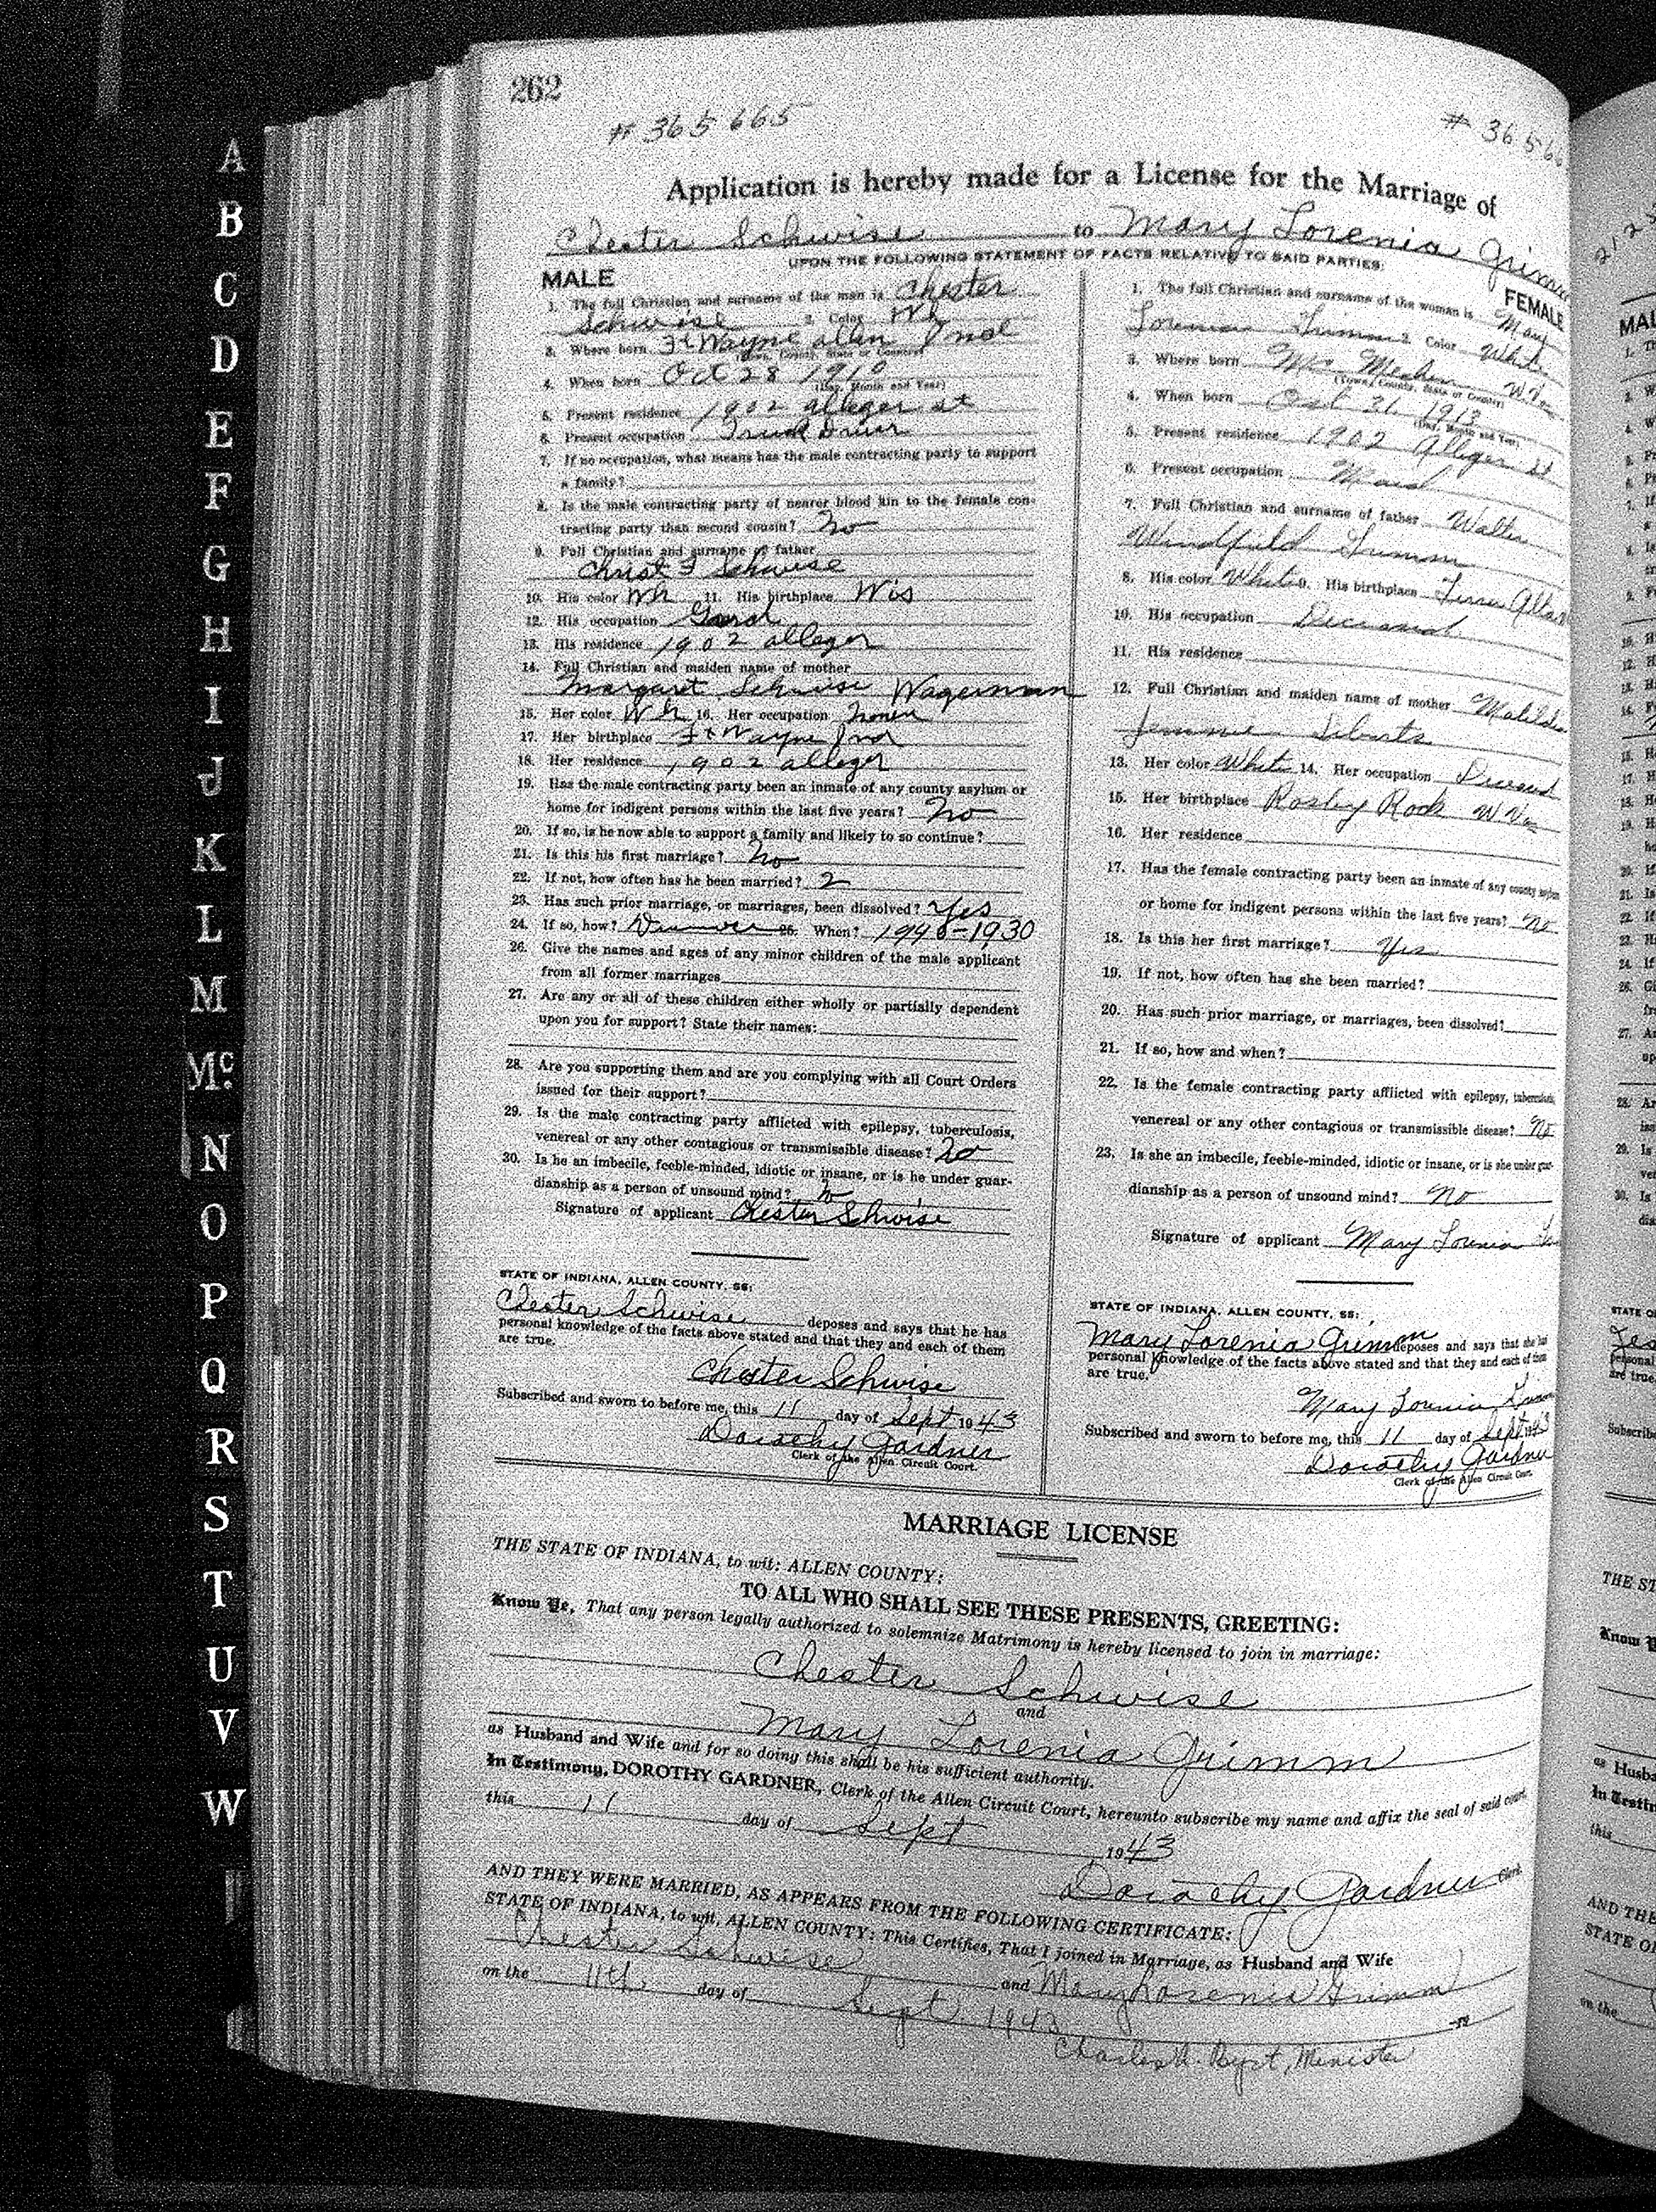 262
# 365665
# 3656
Application is hereby made for a License for the Marriage of
Chester Schwise to Mary Lorenia Grimm
UPON THE FOLLOWING STATEMENT OF FACTS RELATIVE TO SAID PARTIES:
MALE
1. The full Christian and surname of the man is Chester
Schwise 2. Color Wh
3. Where born Ft Wayne Allen Ind
(Town, County, State or Country)
4. When born Oct 28 1910
(Day, Month and Year)
5. Present residence 1902 alleger st
6. Present occupation Truck Driver
7. If no occupation, what means has the male contracting party to support
a family?
8. Is the male contracting party of nearer blood kin to the female con-
tracting party than second cousin? No
9. Full Christian and surname of father
Christ F Schwise
10. His color Wh 11. His birthplace Wis
12. His occupation
13. His residence 1902 alleger
14. Full Christian and maiden name of mother
Margaret Schwise Wagerman
15. Her color Wh 16. Her occupation
17. Her birthplace Ft Wayne Ind
18. Her residence 1902 alleger
19. Has the male contracting party been an inmate of any county asylum or
home for indigent persons within the last five years? No
20. If so, is he now able to support a family and likely to so continue?
21. Is this his first marriage? No
22. If not, how often has he been married? 2
23. Has such prior marriage, or marriages, been dissolved? Yes
24. If so, how? 25. When? 1940-1930
26. Give the names and ages of any minor children of the male applicant
from all former marriages
27. Are any or all of these children either wholly or partially dependent
upon you for support? State their names:
28. Are you supporting them and are you complying with all Court Orders
issued for their support?
29. Is the male contracting party afflicted with epilepsy, tuberculosis,
venereal or any other contagious or transmissible disease? No
30. Is he an imbecile, feeble-minded, idiotic or insane, or is he under guar-
dianship as a person of unsound mind? No
Signature of applicant Chester Schwise
STATE OF INDIANA, ALLEN COUNTY, SS:
Chester Schwise deposes and says that he has
personal knowledge of the facts above stated and that they and each of them
are true.
Chester Schwise
Subscribed and sworn to before me, this 11 day of Sept 1943
Dorothy Gardner
Clerk of the Allen Circuit Court.
FEMALE
1. The full Christian and surname of the woman is Mary
Lorenia Grimm 2. Color White
3. Where born Mc Mechen W Va
(Town, County, State or Country)
4. When born Oct 31 1913
(Day, Month and Year)
5. Present residence 1902 Alleger st
6. Present occupation Maid
7. Full Christian and surname of father Walter
Windfield Grimm
8. His color White 9. His birthplace
10. His occupation Deceased
11. His residence
12. Full Christian and maiden name of mother Matilda
Jemmie Siberts
13. Her color White 14. Her occupation Deceased
15. Her birthplace Rosby Rock W Va
16. Her residence
17. Has the female contracting party been an inmate of any county asylum
or home for indigent persons within the last five years? No
18. Is this her first marriage? Yes
19. If not, how often has she been married?
20. Has such prior marriage, or marriages, been dissolved?
21. If so, how and when?
22. Is the female contracting party afflicted with epilepsy, tuberculosis,
venereal or any other contagious or transmissible disease? No
23. Is she an imbecile, feeble-minded, idiotic or insane, or is she under guar-
dianship as a person of unsound mind? No
Signature of applicant Mary Lorenia
STATE OF INDIANA, ALLEN COUNTY, SS:
Mary Lorenia Grimm deposes and says that she has
personal knowledge of the facts above stated and that they and each of them
are true.
Mary Lorenia Grimm
Subscribed and sworn to before me, this 11 day of Sept 1943
Dorothy Gardner
Clerk of the Allen Circuit Court.
MARRIAGE LICENSE
THE STATE OF INDIANA, to wit: ALLEN COUNTY:
TO ALL WHO SHALL SEE THESE PRESENTS, GREETING:
Know Ye, That any person legally authorized to solemnize Matrimony is hereby licensed to join in marriage:
Chester Schwise
and
Mary Lorenia Grimm
as Husband and Wife and for so doing this shall be his sufficient authority.
In Testimony, DOROTHY GARDNER, Clerk of the Allen Circuit Court, hereunto subscribe my name and affix the seal of said court,
this 11 day of Sept 1943
Dorothy Gardner Clerk
AND THEY WERE MARRIED, AS APPEARS FROM THE FOLLOWING CERTIFICATE:
STATE OF INDIANA, to wit, ALLEN COUNTY: This Certifies, That I joined in Marriage, as Husband and Wife
Chester Schwise and Mary Lorenia Grimm
on the 11th day of Sept 1943 19
Charles Minister
A
B
C
D
E
F
G
H
I
J
K
L
M
Mc
N
O
P
Q
R
S
T
U
V
W